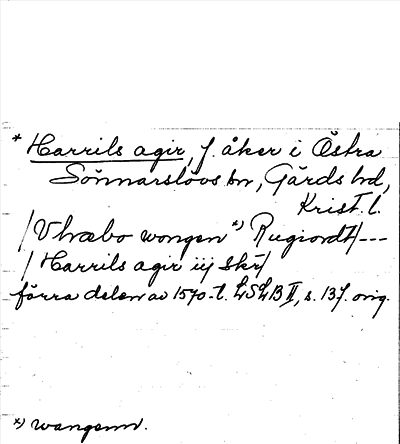 * Harrils agir, f. åker i Östra
Sönnarslövs sn, Gärds hd,
Krist. l.
/Vhræbo wongen *) Rugiordt/---
/Harrils agir iij Skr/
förra delen av 1570-t. LSLB II, s. 137. orig.
*) wangenn.